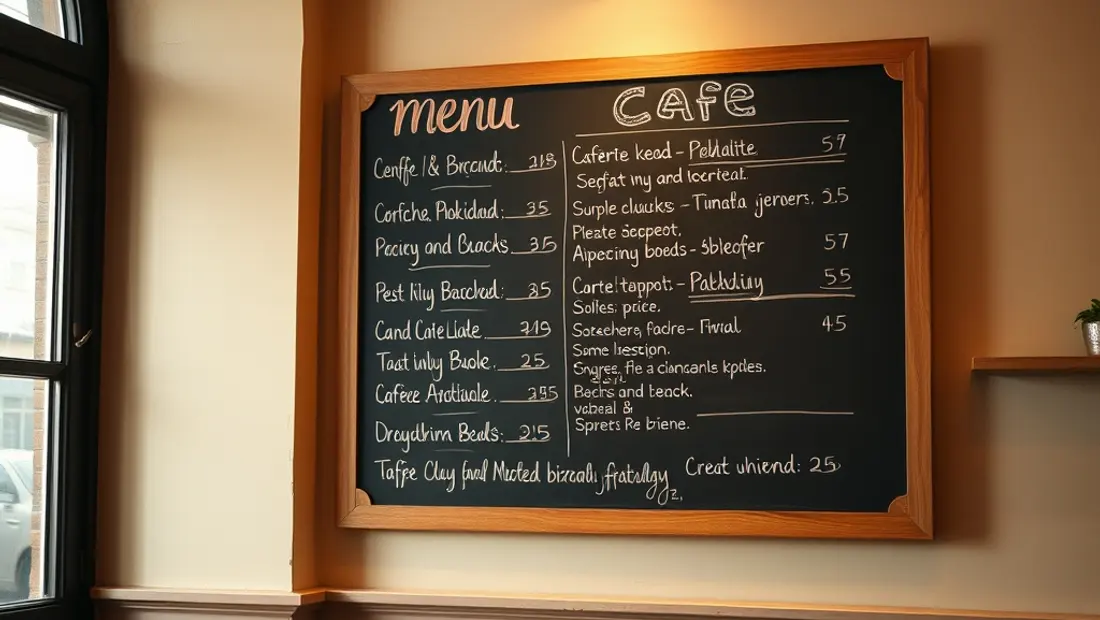 menu
CAFe
Cenffe / & Brçcndt: 218
Corfche Pokidad: 35
Pocicy and Buacks 35
Pest hily Bacchad: 85
Cand Cate Liade 249
Taat inby Buole. 25
Cafece Arotinole. 255
Droydhirn Beals: 215
Caferte kead - Peklalite 57
Segfat iny and locrieat.
Surple cluuks - Tunafa jervers. 35
Pleate secpeot.
Aipeciny boeds - Sbleofer 57
Cartel tappot: - Patkluiny 55
Solles: price.
Soteehere, facire - Fiwal 45
Some lsestion.
Sngres, Fle a cioncanls kptles.
Bectrs and teack.
vcbeal &
Sprets Re biene.
Taffe Clay and Mucted bizcali, fratslgy
Creat uhiend: 25